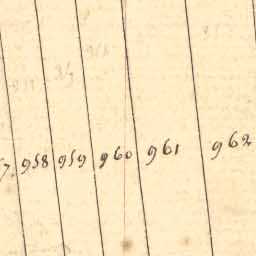 7 958 959 960 961 962